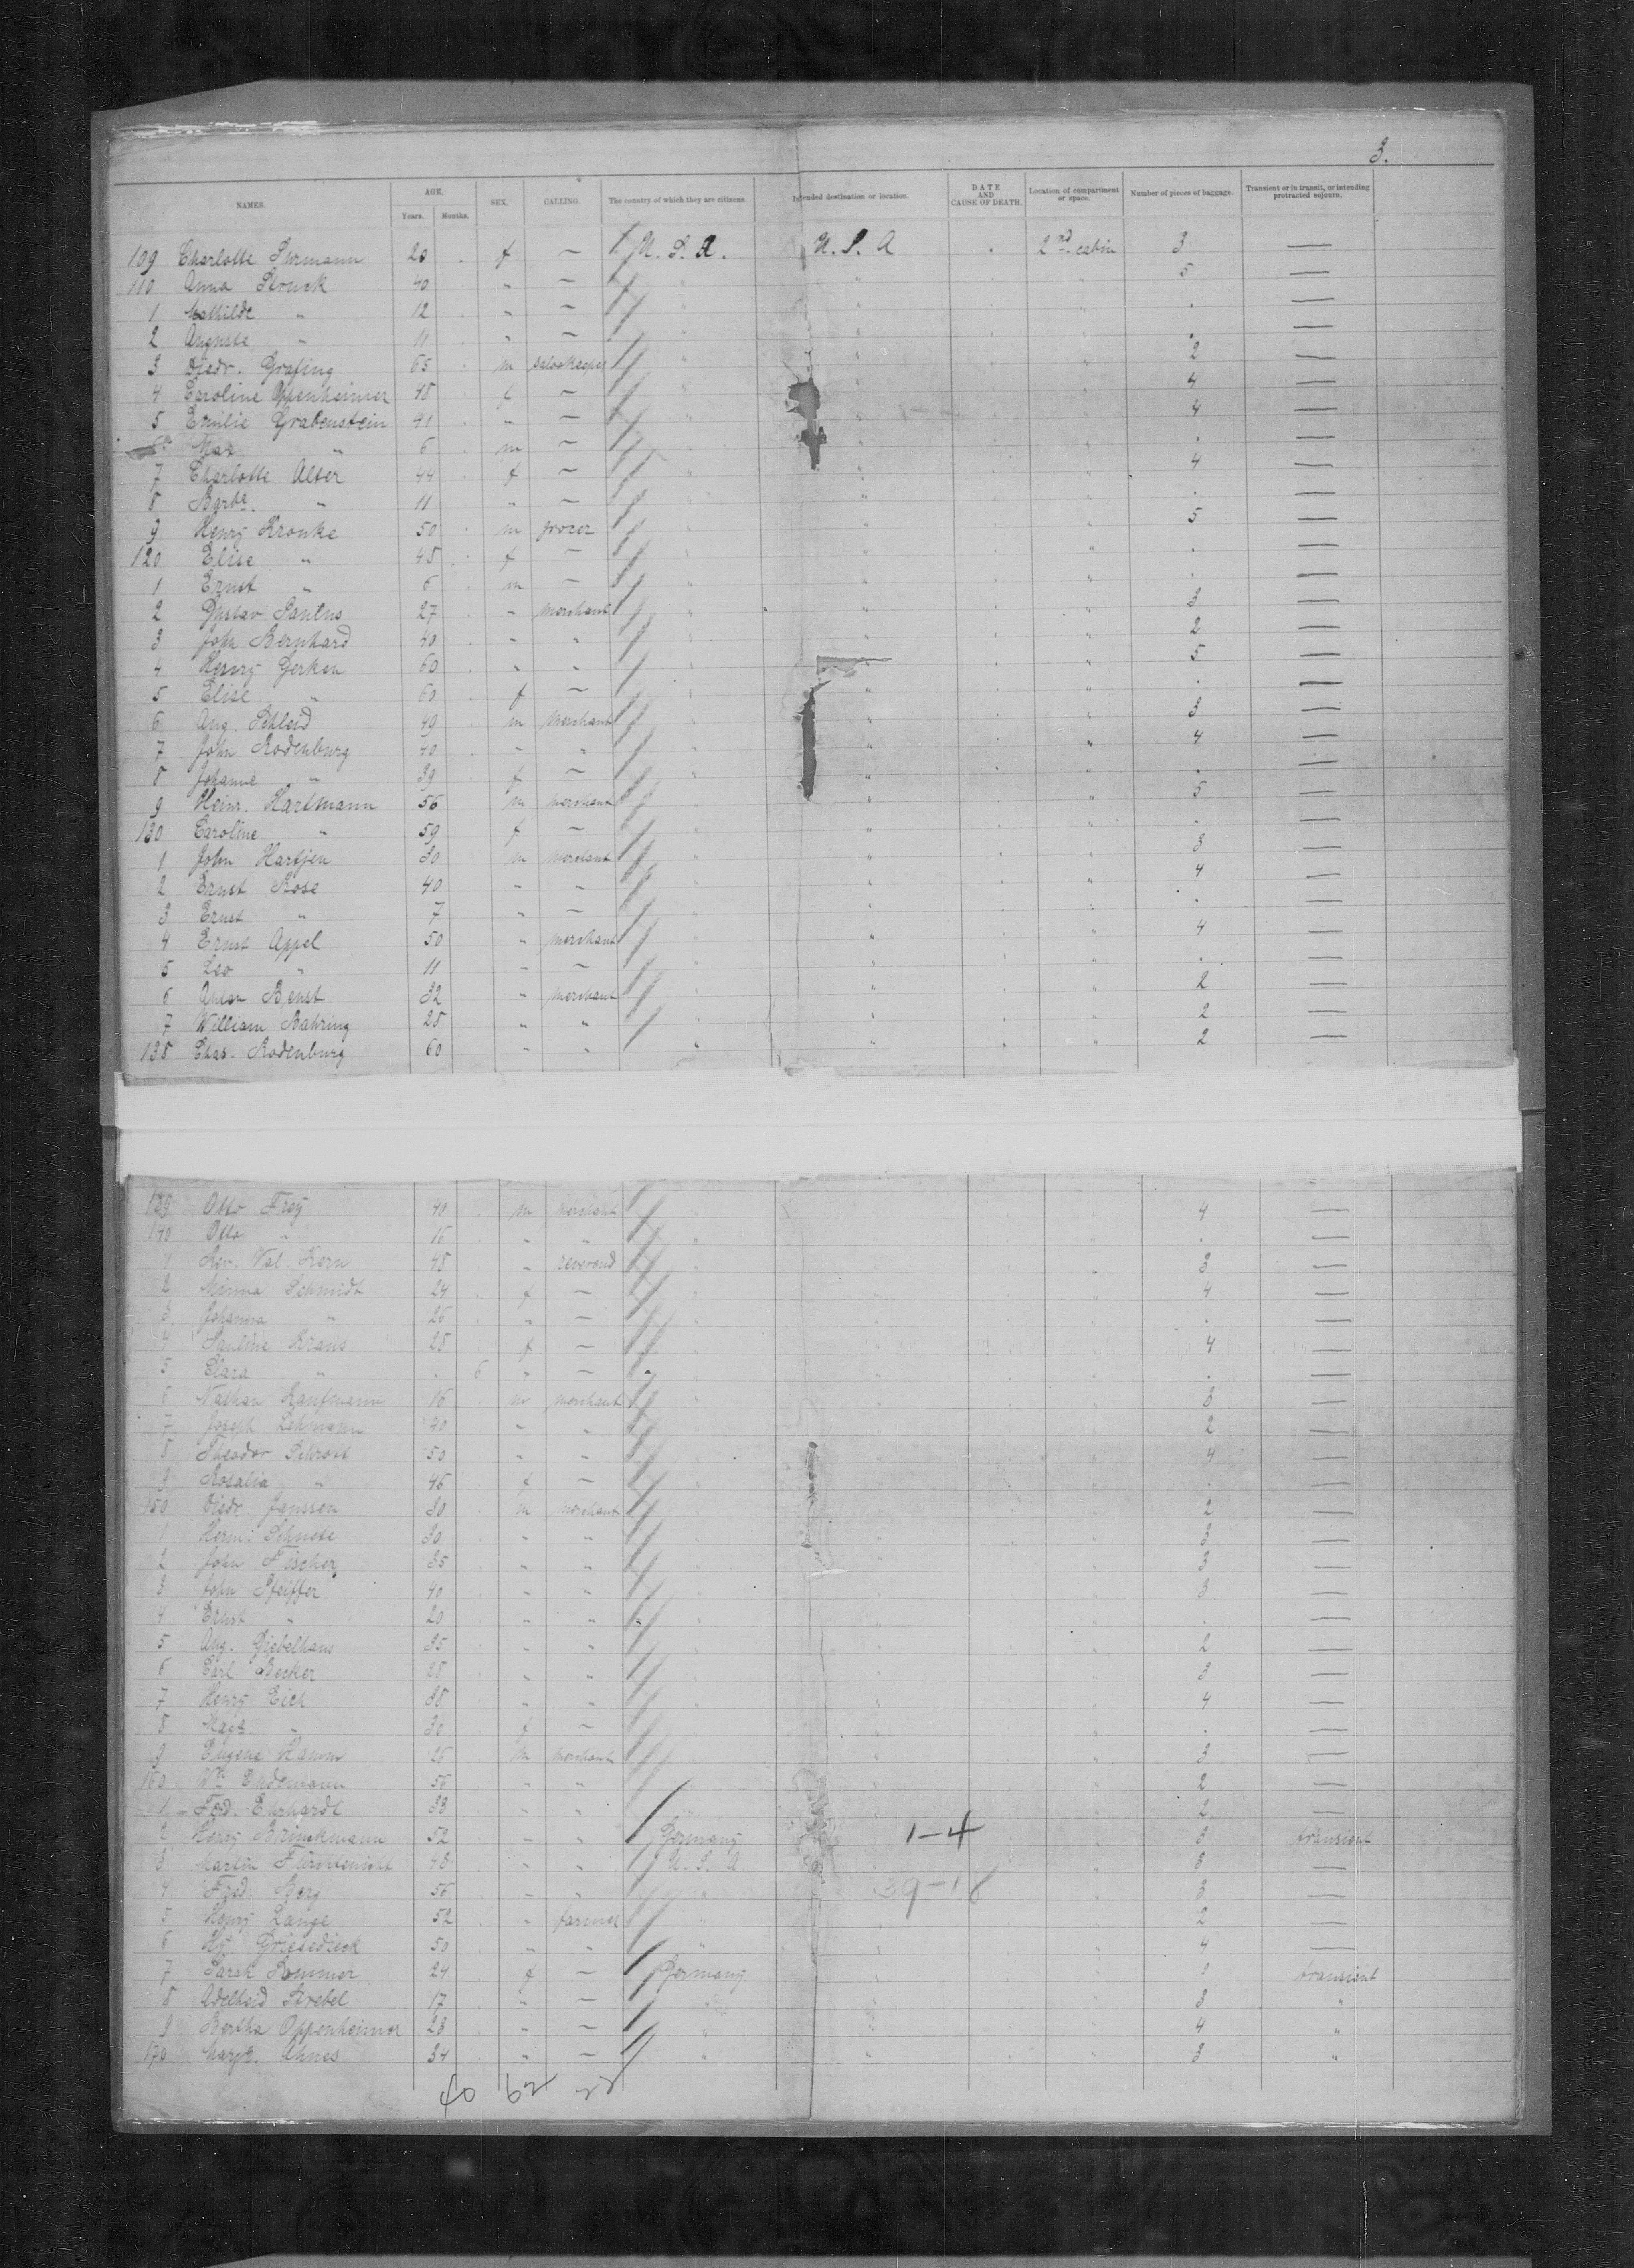 3.
NAMES. AGE. Years. Months. SEX. CALLING. The country of which they are citizens. Intended destination or location. DATE AND CAUSE OF DEATH. Location of compartment or space. Number of pieces of baggage. Transient or in transit, or intending protracted sojourn.
109 Charlotte Stürmann 20 . f — U. S. A. U. S. A . 2nd cabin 3 —
110 Anna Struck 40 . " — " " 5 —
1 Mathilde " 12 . " — " " . —
2 Auguste " 11 . " — " " . —
3 Diedr. Grafing 65 m salookeeper " " 2 —
4 Caroline Oppenheimer 48 f — " " 4 —
5 Emilie Grabenstein 41 " — " " 4 —
6 Max " 6 . m — " " . —
7 Charlotte Alter 44 . f — " " 4 —
8 Barba. " 11 " — " " . —
9 Henry Kronke 50 . m grocer " " 5 —
120 Elise " 45 . f — " " . —
1 Ernst " 6 . m — " " . —
2 Gustav Paulus 27 " merchant " " 3 —
3 John Bernhard 40 . " " " " 2 —
4 Henry Gerken 60 . " " " " 5 —
5 Elise " 60 . f — " " . —
6 Aug. Schleid 49 . m merchant " " 3 —
7 John Rodenburg 40 . " " " " 4 —
8 Johanne " 39 . f — " " . —
9 Heinr. Hartmann 56 m merchant " " 5 —
130 Caroline " 59 f — " " . —
1 John Hartjen 30 m merchant " " 3 —
2 Ernst Rose 40 " " " " 4 —
3 Ernst " 7 " — " " . —
4 Ernst Appel 50 " merchant " " 4 —
5 Leo " 11 " — " " . —
6 Anton Benst 32 " merchant " " 2 —
7 William Bahring 28 " " " " 2 —
138 Chas. Rodenburg 60 " " " " 2 —
139 Otto Frey 40 . m merchant 4 —
140 Otto " 16 . " " " . —
1 Rev. Val. Kern 48 . " reverend " 3 —
2 Minna Schmidt 24 . f — " 4 —
3 Johanna " 26 . " — " . —
4 Pauline Kraus 28 f — " 4 —
5 Clara " . 6 " — " . —
6 Nathan Kaufmann 16 m merchant " 3 —
7 Joseph Lehmann 40 " " " 2 —
8 Theodor Schrott 50 . " " " 4 —
9 Rosalia " 46 . f — " . —
150 Diedr. Janssen 30 . m merchant " 2 —
1 Herm. Schnete 30 . " " " 3 —
2 John Fischer 35 . " " " 3 —
3 John Pfeiffer 40 . " " " 3 —
4 Ernst " 20 . " " " . —
5 Aug. Giebelhaus 35 . " " " 2 —
6 Carl Becker 28 . " " " 3 —
7 Henry Eich 38 . " " " 4 —
8 Magt. " 30 . f — " . —
9 Eugene Hamm 26 . m merchant " 3 —
160 Wm. Endemann 56 . " " " 2 —
1 Ferd. Ehrhardt 38 . " " " 2 —
2 Henry Brinkmann 52 . " " Germany 1-4 3 transient
3 Martin 48 . " " U. S. A. " 3 —
4 Fred. Berg 56 . " " " 39-18 3 —
5 Henry Lange 52 " farmer " " 2 —
6 Hy. Griesedieck 50 . " " " " 4 —
7 Sarah Rommer 24 . f — Germany " transient
8 Adelheid Strebel 17 . " — " " 3 "
9 Bertha Oppenheimer 28 . " — " " 4 "
170 Margt. Ahnes 34 . " — " " 3 "
40 62 22